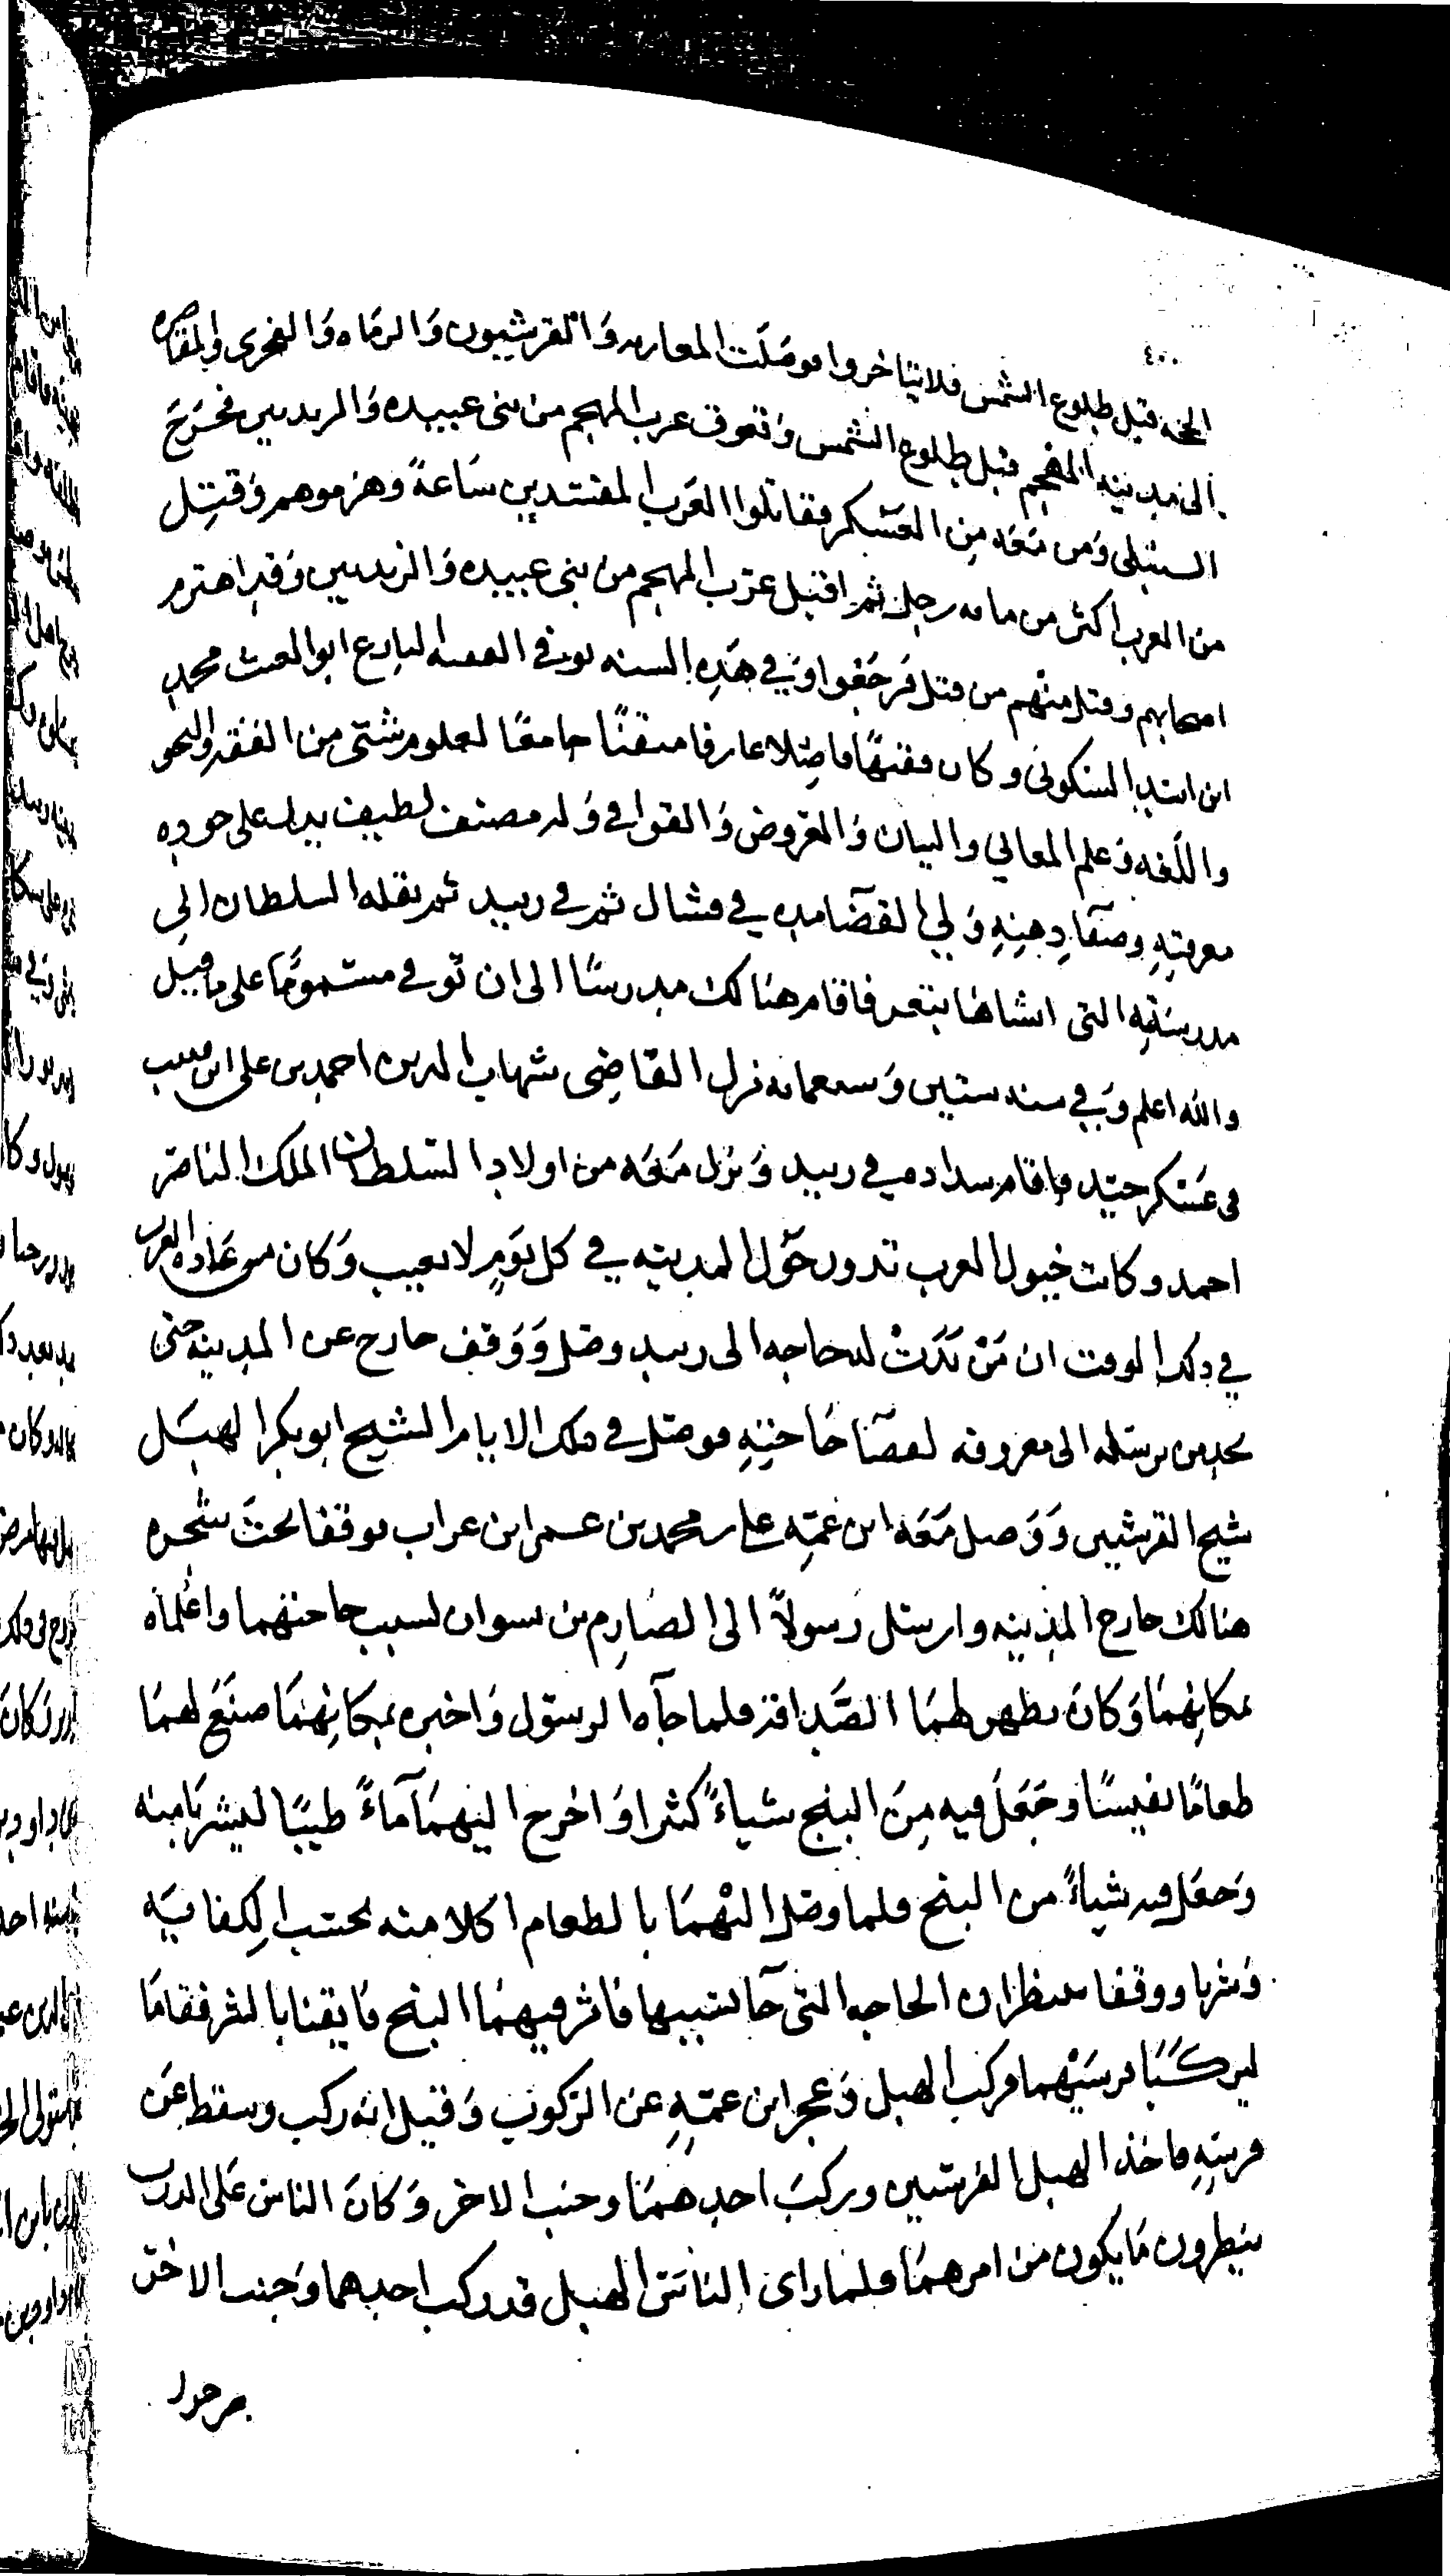 ٤٠٠
قبل طلوع الشمس فلا تتاخروا فوصلت المعازبه والقرشيون والرماه والفخرى والمقاصره
الى مدينه المهجم قبل طلوع الشمس وتعوق عرب المهجم من بنى عبيده والزيديين فخرج
السنبلى ومن معه من العسكر فقاتلوا العرب المفسدين ساعةً وهزموهم وقتل
من العرب اكثر من مائه رجل ثم اقبل عرب المهجم من بنى عبيده والزيديين وقد اهتزم
اصحابهم وقتل منهم من قتل فرجعوا وفي هذه السنه توفى الفقيه البارع ابو الغيث محمد
ابن السكونى وكان فقيهًا فاضلا عارفا متقنًا جامعًا لعلوم شتى من الفقه والنحو
واللغه وعلم المعاني والبيان والعروض والقوافي وله مصنف لطيف يدل على جوده
معرفتهِ وصفآ ذهنهِ ولي القضآ مده في فشال ثم في زبيد ثم نقله السلطان الى
مدرسته التى انشاها بتعز فاقام هنالك مدرسًا الى ان توفى مسمومًا على ما قيل
والله اعلم وفي سنه ستين وسبعمائه نزل القاضى شهاب الدين احمد بن على ابن قبيب
فى عسكر جيد فاقام فى زبيد ونزل معه من اولاد السلطان الملك الناصر
احمد وكانت خيول العرب تدور حول المدينه في كل يومٍ لا تغيب وكان من عاده العرب
في ذلك الوقت ان من بدت له حاجه الى زبيد وصل ووقف خارج عن المدينه حتى
يجد من يرسله الى معروفه لقضآ حاجتهِ فوصل في تلك الايام الشيخ ابو بكر الهبل
شيخ القرشيين ووصل معه ابن عمّهِ على بن محمد بن عمر ابن غراب فوقفا تحت شجره
هنالك خارج المدينه وارسل رسولاً الى الصارم بن نسوان لسبب حاجتهما واعلماه
بمكانهما وكان يظهر لهما الصداقه فلما جآه الرسول واخبره بمكانهما صنع لهما
طعامًا نفيسًا وجعل فيه من البنج شياءً كثيرا واخرج اليهما مآءً طيبًا ليشربا منه
وجعل فيه شياءً من البنج فلما وصل اليهما بالطعام اكلا منه بحسب الكفايه
وشربا ووقفا ينتظران الحاجه التى جآ لسببها فاثر فيهما البنج فايقنا بالشر فقاما
ليركبا فرسيهما فركب الهبل وعجز ابن عمّهِ عن الركوب وقيل انه ركب وسقط عن
فرسهِ فاخذ الهبل الفرسين وركب احدهما وجنب الاخر وكان الناس على الدرب
ينظرون ما يكون من امرهما فلما راى الناس الهبل قد ركب احدهما وجنب الاخر